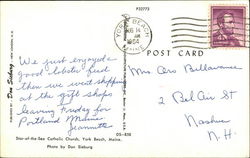 P32773
YORK BEACH
AUG 14
AM
1964
MAINE
POST CARD
We just enjoyed a
good lobster feed
then we went shopping
at the gift shops
leaving Friday for
Portland Maine
Jeannette
Mrs Cleo Bellavance
2 Bel Air St
Nashua
N.H.
Star-of-the-Sea Catholic Church, York Beach, Maine.
Photo by Don Sieburg
OS-838
Don Sieburg